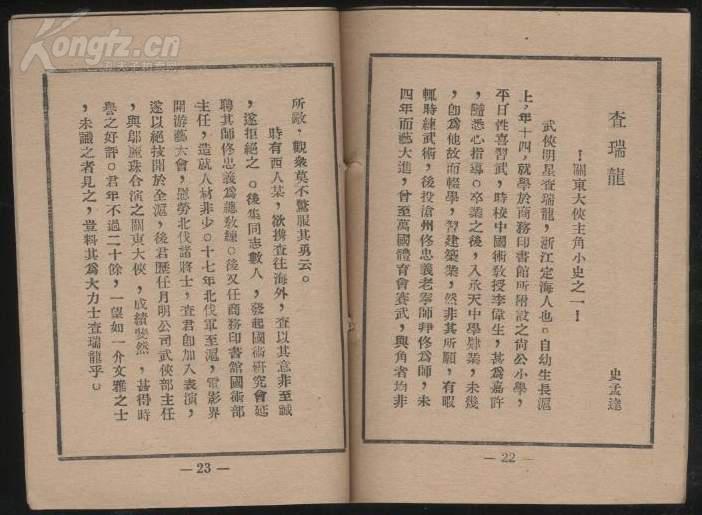 Kongfz.cn
查瑞龍
!關東大俠主角小史之一!
史孟達
武俠明星查瑞龍,浙江定海人也。自幼生長滬
上,年十四,就學於商務印書館所附設之尚公小學,
平日性喜習武,時校中國術敎授李偉生,甚爲嘉許
,隨悉心指導。卒業之後,入承天中學肄業,未幾
,卽爲他故而輟學,習建築業,然非其所願,有暇
輒時練武術,後投滄州佟忠義老
佟爲師,未
四年而藝大進,曾至萬國體育會賽武,與角者均非
— 22 —
所敵,觀衆莫不驚服其勇云。
時有西人某,欲携査往海外,査以其意非至誠
,遂拒絕之。後集同志數人,發起國術研究會延
聘其師佟忠義爲總敎練。後又任商務印書館國術部
主任,造就人材非少。十七年北伐軍至滬,電影界
開游藝大會,慰勞北伐諸將士,査君卽加入表演,
遂以絕技聞於全滬,後君歷任月明公司武俠部主任
,與鄔麗珠合演之關東大俠,成績斐然,甚得時
譽之好評。君年不過二十餘,一望如一介文雅之士
,未識之者見之,豈料其爲大力士查瑞龍乎。
— 23 —